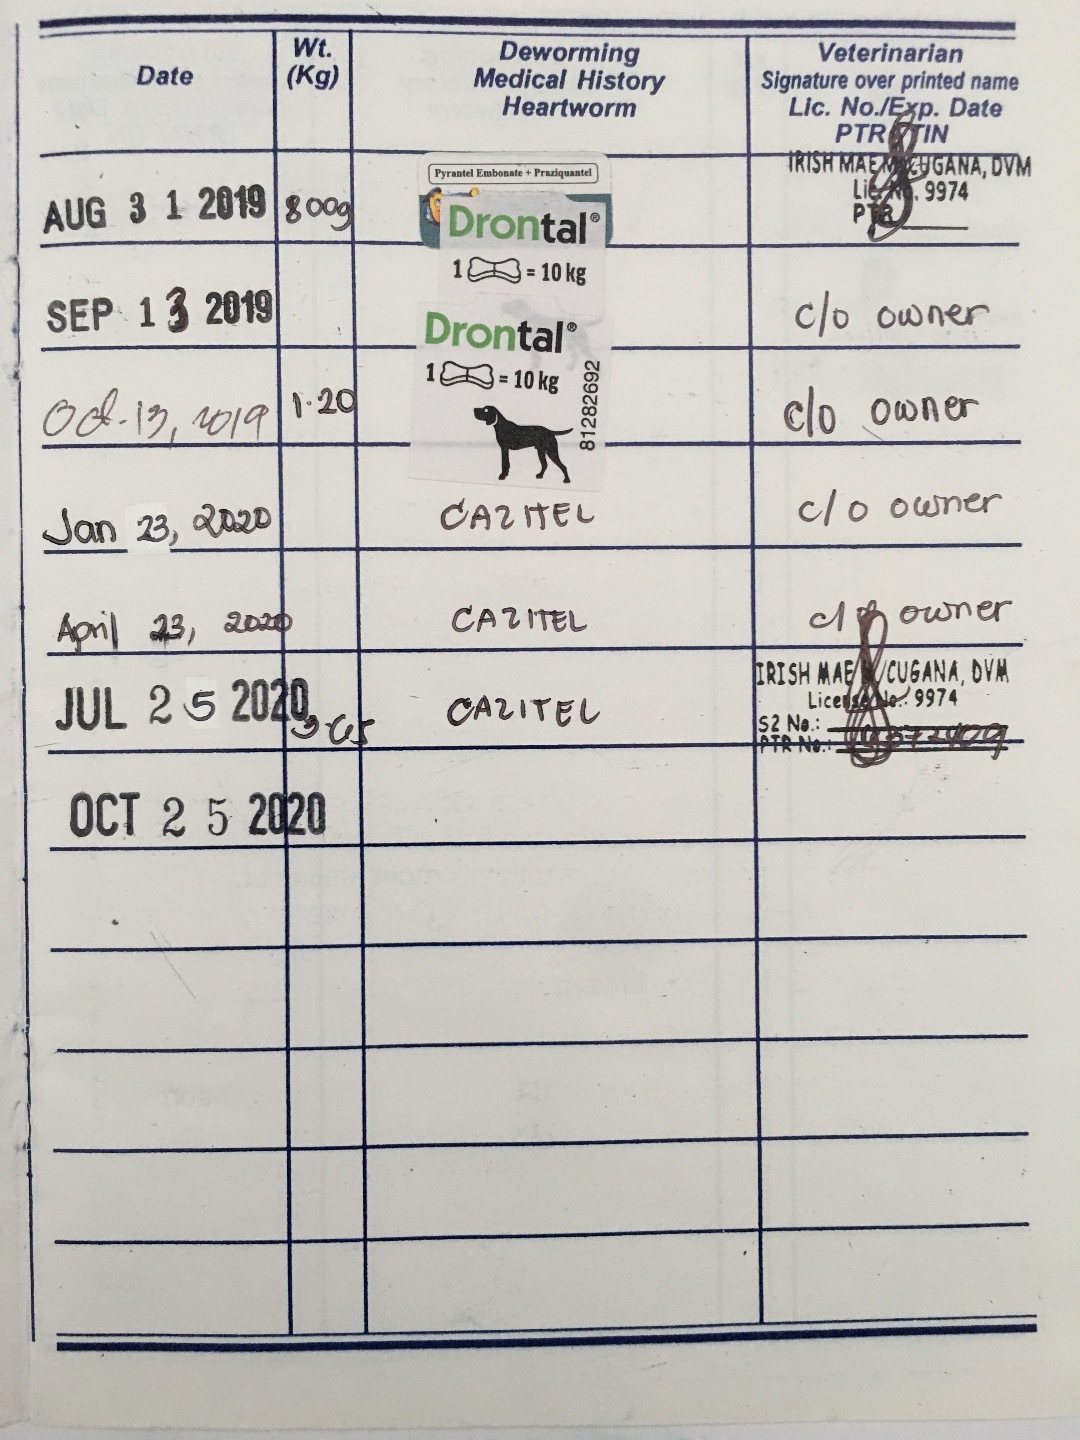 Date
Wt.
(Kg)
Deworming
Medical History
Heartworm
Veterinarian
Signature over printed name
Lic. No./Exp. Date
PTR TIN
AUG 31 2019
800g
Pyrantel Embonate + Praziquantel
Drontal®
1 = 10 kg
IRISH MAE M. CUGANA, DVM
Lic. No. 9974
PTR
SEP 13 2019
Drontal®
c/o owner
Oct. 13, 2019
1.20
1 = 10 kg
81282692
c/o owner
Jan 23, 2020
CAZITEL
c/o owner
April 23, 2020
CAZITEL
c/o owner
JUL 25 2020
3.65
CAZITEL
IRISH MAE CUGANA, DVM
License No.: 9974
S2 No.:
PTR No.:
OCT 25 2020